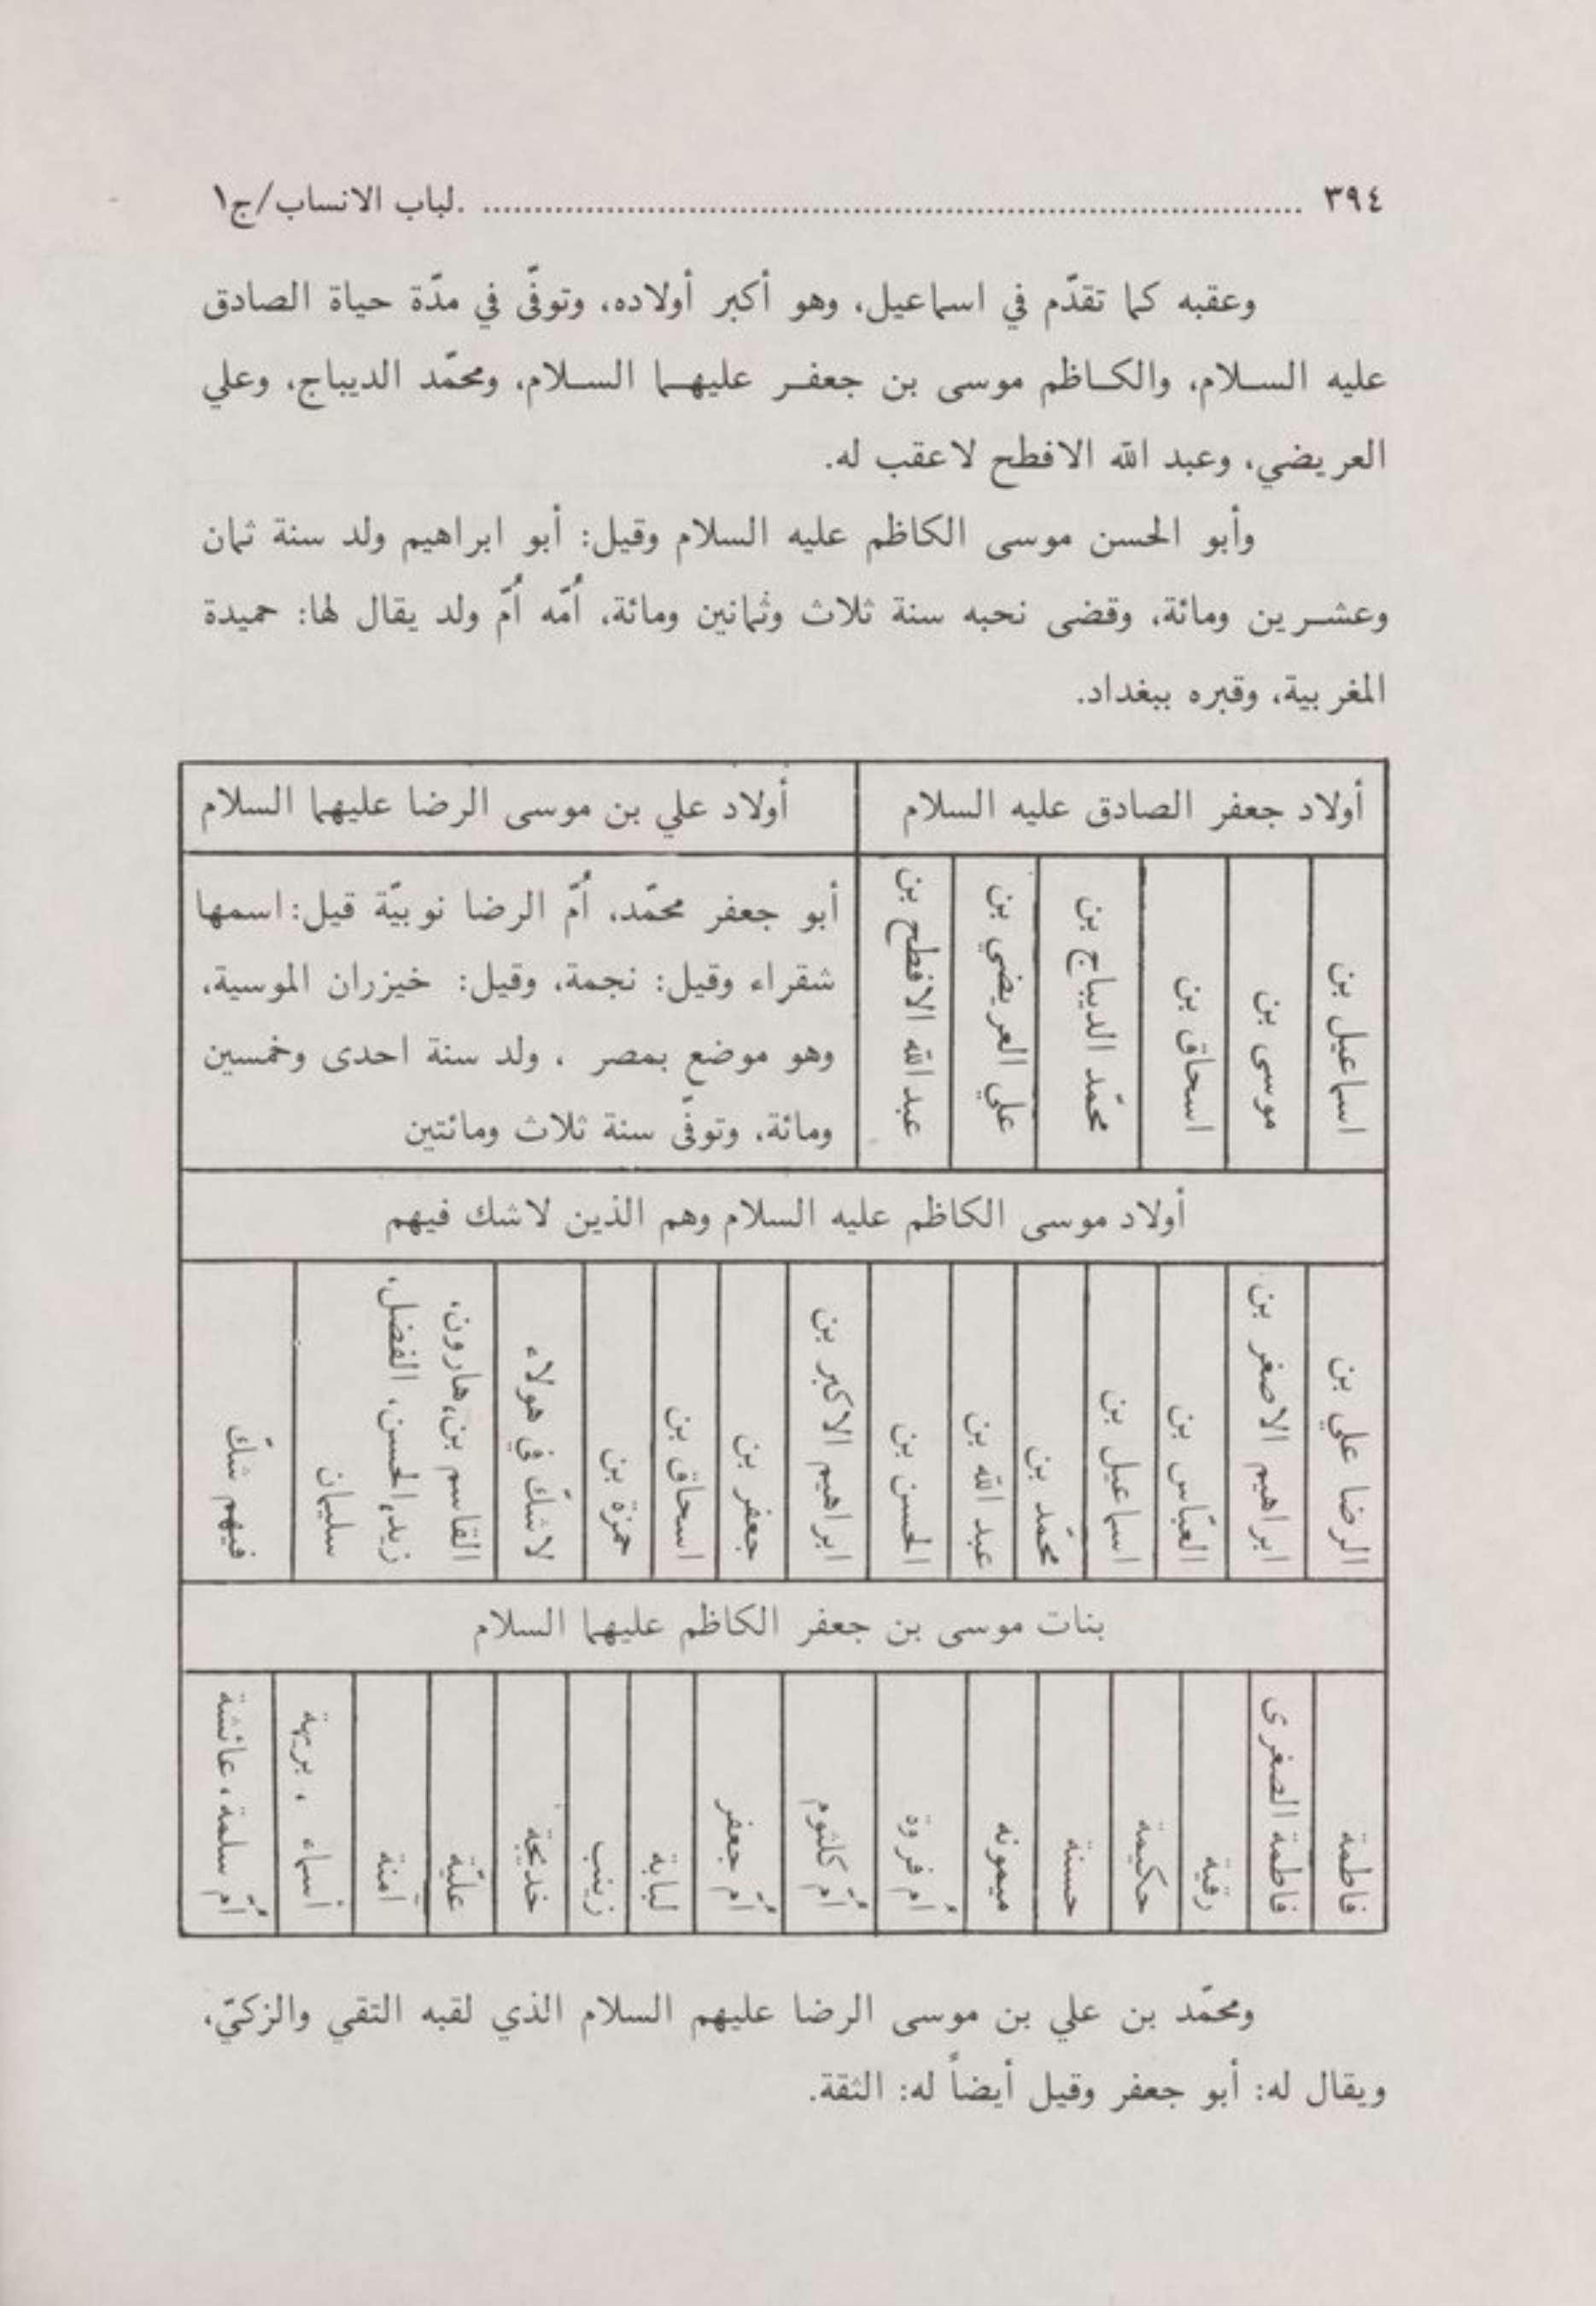 ٣٩٤ ........................................ لباب الانساب/ج١
وعقبه كما تقدّم في اسماعيل، وهو أكبر أولاده، وتوفّى في مدّة حياة الصادق
عليه السلام، والكاظم موسى بن جعفر عليهما السلام، ومحمّد الديباج، وعلي
العريضي، وعبد الله الافطح لاعقب له.
وأبو الحسن موسى الكاظم عليه السلام وقيل: أبو ابراهيم ولد سنة ثمان
وعشرين ومائة، وقضى نحبه سنة ثلاث وثمانين ومائة، اُمّه اُمّ ولد يقال لها: حميدة
المغربية، وقبره ببغداد.
أولاد جعفر الصادق عليه السلام
اسماعيل بن
موسى بن
اسحاق بن
محمّد الديباج بن
علي العريضي بن
عبد الله الافطح بن
أولاد علي بن موسى الرضا عليهما السلام
أبو جعفر محمّد، اُمّ الرضا نوبيّة قيل: اسمها
شقراء وقيل: نجمة، وقيل: خيزران الموسية،
وهو موضع بمصر ، ولد سنة احدى وخمسين
ومائة، وتوفّى سنة ثلاث ومائتين
أولاد موسى الكاظم عليه السلام وهم الذين لاشك فيهم
الرضا علي بن
ابراهيم الاصغر بن
العبّاس بن
اسماعيل بن
محمّد بن
عبد الله بن
الحسن بن
ابراهيم الاكبر بن
جعفر بن
اسحاق بن
حمزة بن
لاشكّ في هولاء
القاسم بن، هارون،
زيد، الحسن، الفضل،
سليمان
فيهم شكّ
بنات موسى بن جعفر الكاظم عليهما السلام
فاطمة
فاطمة الصغرى
رقية
حكيمة
حسنة
ميمونه
اُم فروة
اُمّ كلثوم
اُمّ جعفر
لبابة
زينب
خديجة
عليّة
آمنة
أسماء ، بريهة
اُمّ سلمة، عائشة
ومحمّد بن علي بن موسى الرضا عليهم السلام الذي لقبه التقي والزكيّ،
ويقال له: أبو جعفر وقيل أيضاً له: الثقة.